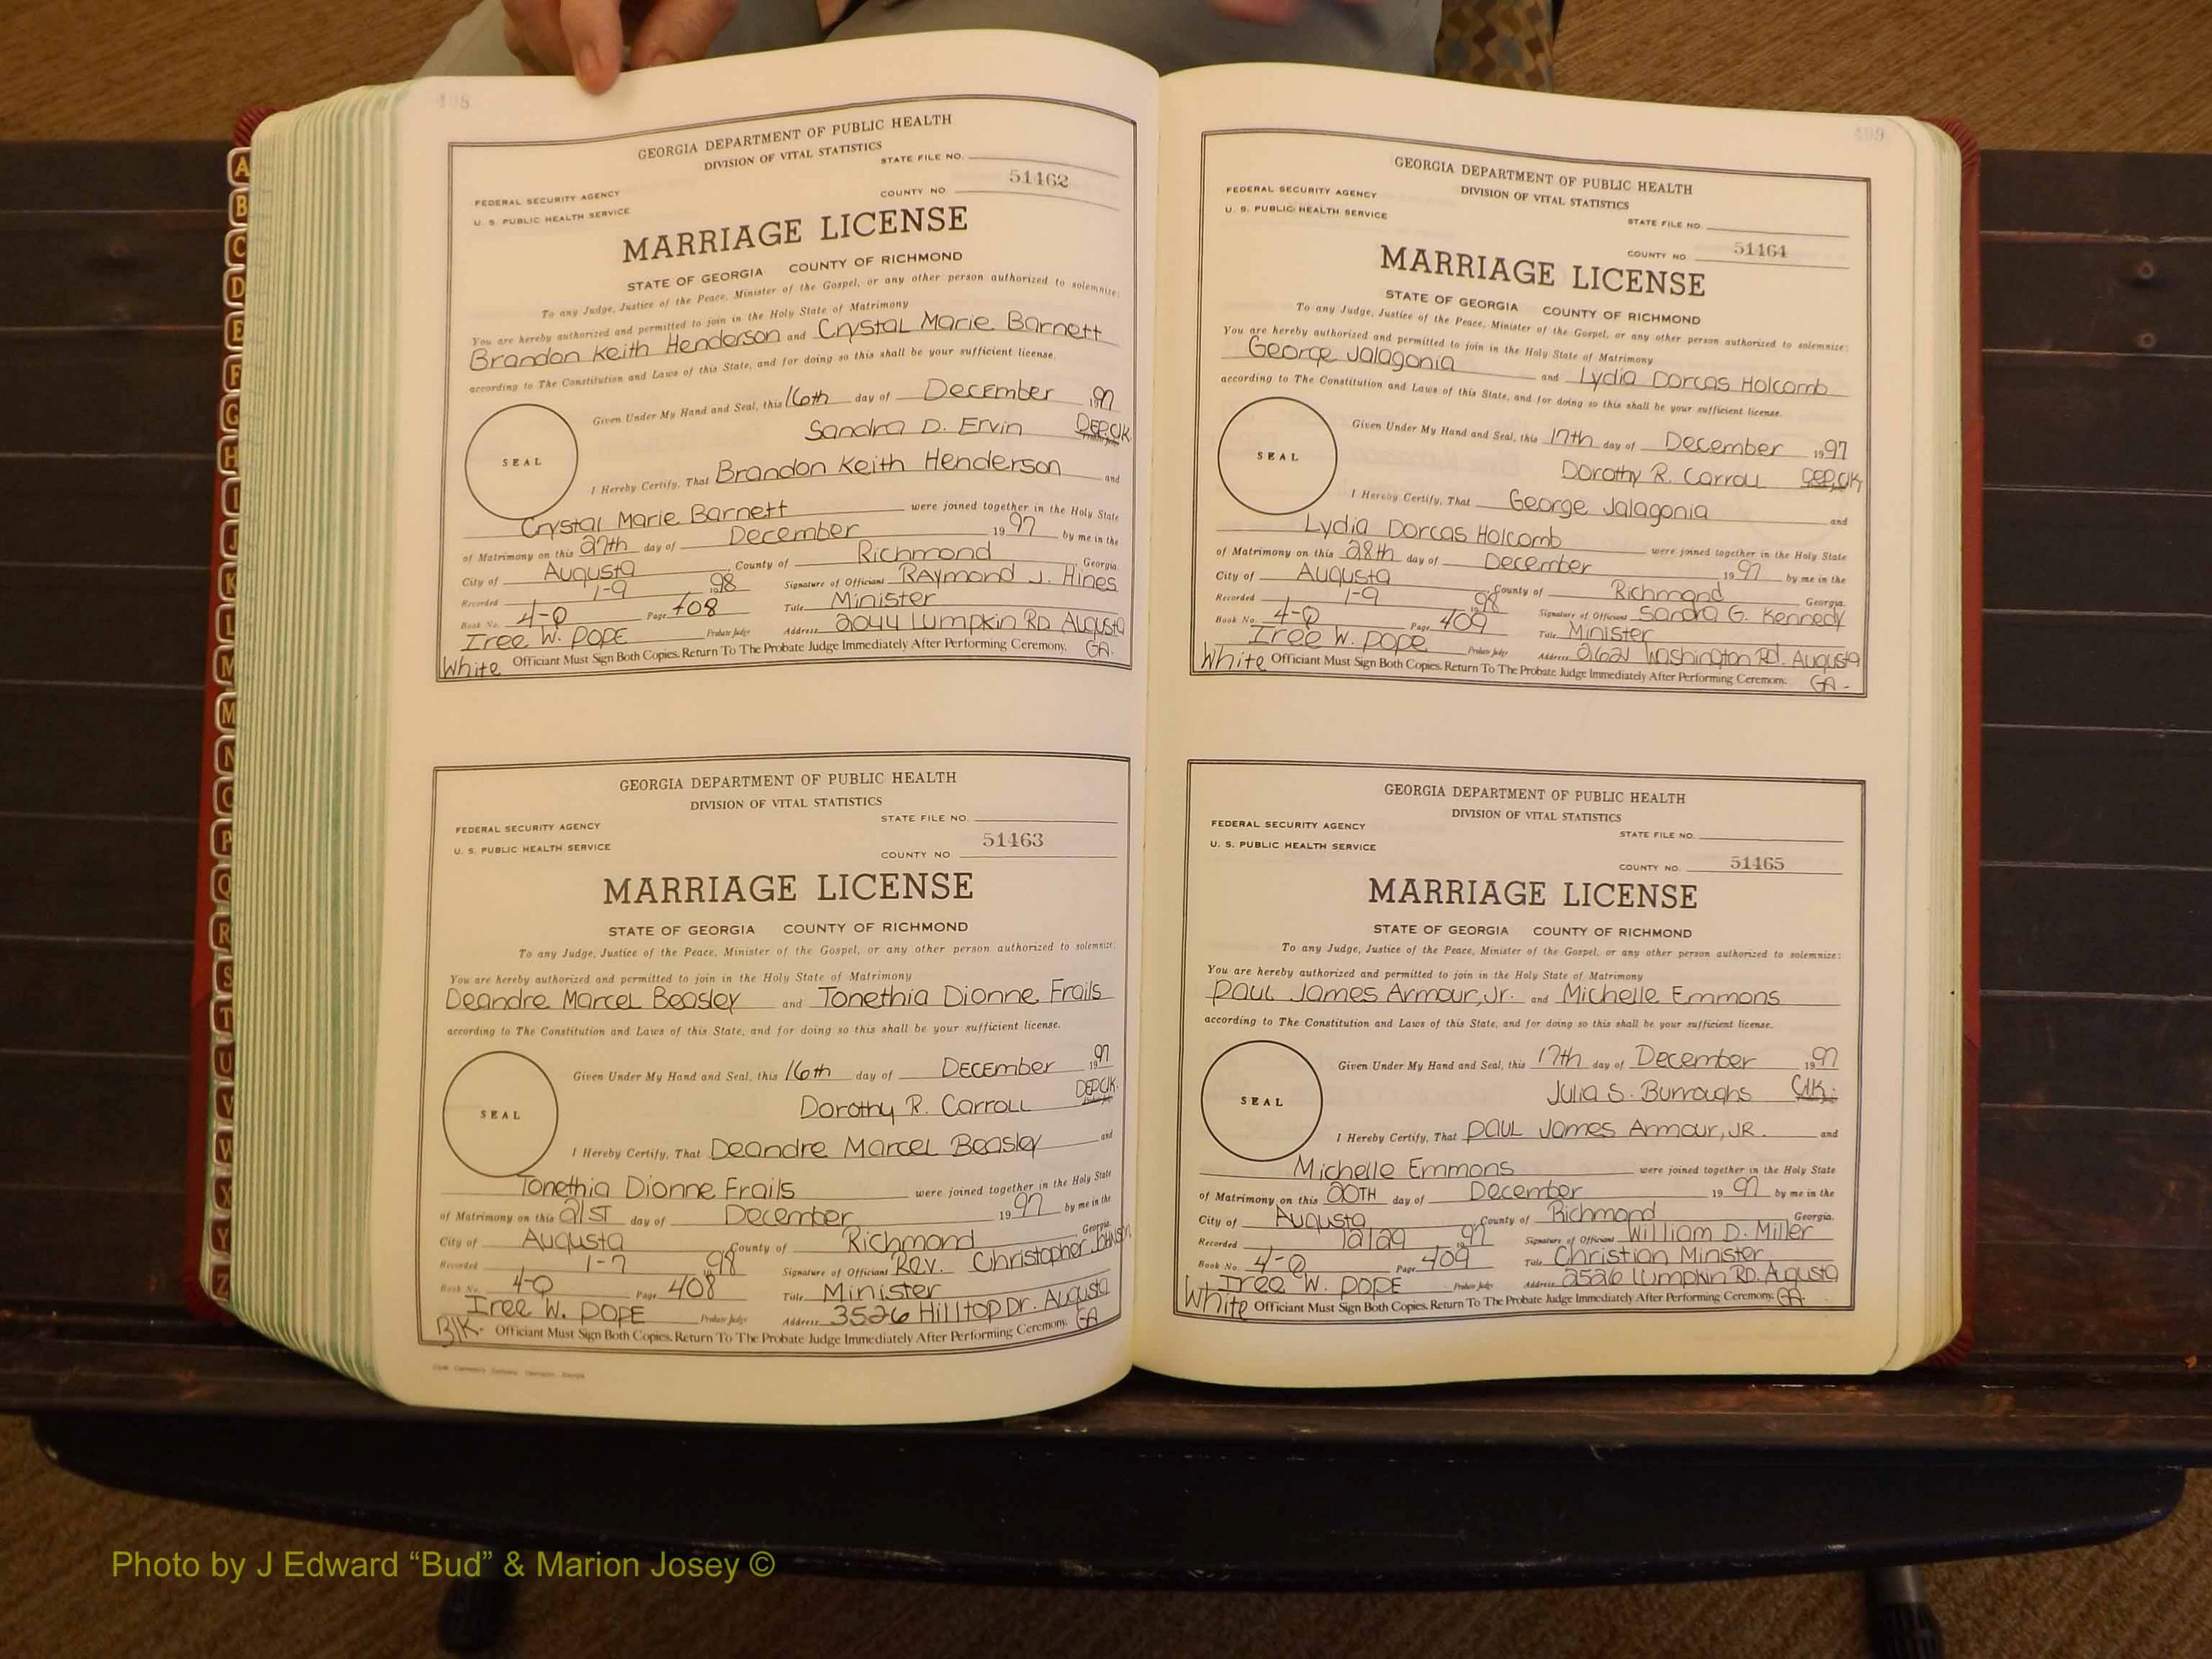 408
GEORGIA DEPARTMENT OF PUBLIC HEALTH
DIVISION OF VITAL STATISTICS
STATE FILE NO.
FEDERAL SECURITY AGENCY
COUNTY NO 51462
U. S. PUBLIC HEALTH SERVICE
MARRIAGE LICENSE
STATE OF GEORGIA COUNTY OF RICHMOND
To any Judge, Justice of the Peace, Minister of the Gospel, or any other person authorized to solemnize:
You are hereby authorized and permitted to join in the Holy State of Matrimony
Brandon Keith Henderson and Crystal Marie Barnett
according to The Constitution and Laws of this State, and for doing so this shall be your sufficient license.
Given Under My Hand and Seal, this 16th day of December 1997
Sandra D. Ervin DEP.ClK
SEAL
I Hereby Certify, That Brandon Keith Henderson and
Crystal Marie Barnett were joined together in the Holy State
of Matrimony on this 27th day of December 1997 by me in the
City of Augusta County of Richmond Georgia.
Recorded 1-9 1998 Signature of Officiant Raymond J. Hines
Book No. 4-Q Page 408 Title Minister
Iree W. POPE Probate Judge Address 2044 Lumpkin RD Augusta
White Officiant Must Sign Both Copies. Return To The Probate Judge Immediately After Performing Ceremony. GA.
GEORGIA DEPARTMENT OF PUBLIC HEALTH
DIVISION OF VITAL STATISTICS
STATE FILE NO.
FEDERAL SECURITY AGENCY
COUNTY NO 51463
U. S. PUBLIC HEALTH SERVICE
MARRIAGE LICENSE
STATE OF GEORGIA COUNTY OF RICHMOND
To any Judge, Justice of the Peace, Minister of the Gospel, or any other person authorized to solemnize:
You are hereby authorized and permitted to join in the Holy State of Matrimony
Deandre Marcel Beasley and Tonethia Dionne Frails
according to The Constitution and Laws of this State, and for doing so this shall be your sufficient license.
Given Under My Hand and Seal, this 16th day of DECEmber 1997
Dorothy R. Carroll DEP.ClK.
SEAL
I Hereby Certify, That Deandre Marcel Beasley and
Tonethia Dionne Frails were joined together in the Holy State
of Matrimony on this 21ST day of December 1997 by me in the
City of Augusta County of Richmond Georgia.
Recorded 1-7 1998 Signature of Officiant Rev. Christopher Johnson
Book No. 4-Q Page 408 Title Minister
Iree W. POPE Probate Judge Address 3526 Hilltop Dr. Augusta
Blk. Officiant Must Sign Both Copies. Return To The Probate Judge Immediately After Performing Ceremony. GA
409
GEORGIA DEPARTMENT OF PUBLIC HEALTH
DIVISION OF VITAL STATISTICS
FEDERAL SECURITY AGENCY
STATE FILE NO.
U. S. PUBLIC HEALTH SERVICE
COUNTY NO 51464
MARRIAGE LICENSE
STATE OF GEORGIA COUNTY OF RICHMOND
To any Judge, Justice of the Peace, Minister of the Gospel, or any other person authorized to solemnize:
You are hereby authorized and permitted to join in the Holy State of Matrimony
George Jalagonia and Lydia Dorcas Holcomb
according to The Constitution and Laws of this State, and for doing so this shall be your sufficient license.
Given Under My Hand and Seal, this 17th day of December 1997
Dorothy R. Carroll DEP.ClK
SEAL
I Hereby Certify, That George Jalagonia and
Lydia Dorcas Holcomb were joined together in the Holy State
of Matrimony on this 28th day of December 1997 by me in the
City of Augusta County of Richmond Georgia.
Recorded 1-9 1998 Signature of Officiant Sandra G. Kennedy
Book No. 4-Q Page 409 Title Minister
Iree W. POPE Probate Judge Address 2621 Washington Rd. Augusta
White Officiant Must Sign Both Copies. Return To The Probate Judge Immediately After Performing Ceremony. GA-
GEORGIA DEPARTMENT OF PUBLIC HEALTH
DIVISION OF VITAL STATISTICS
FEDERAL SECURITY AGENCY
STATE FILE NO.
U. S. PUBLIC HEALTH SERVICE
COUNTY NO. 51465
MARRIAGE LICENSE
STATE OF GEORGIA COUNTY OF RICHMOND
To any Judge, Justice of the Peace, Minister of the Gospel, or any other person authorized to solemnize:
You are hereby authorized and permitted to join in the Holy State of Matrimony
PAUL James Armour, Jr. and Michelle Emmons
according to The Constitution and Laws of this State, and for doing so this shall be your sufficient license.
Given Under My Hand and Seal, this 17th day of December 1997
Julia S. Burroughs Clk.
SEAL
I Hereby Certify, That PAUL James Armour, JR. and
Michelle Emmons were joined together in the Holy State
of Matrimony on this 20TH day of December 1997 by me in the
City of Augusta County of Richmond Georgia.
Recorded 12/29 1997 Signature of Officiant William D. Miller
Book No. 4-Q Page 409 Title Christian Minister
Iree W. POPE Probate Judge Address 2526 Lumpkin RD. Augusta
White Officiant Must Sign Both Copies. Return To The Probate Judge Immediately After Performing Ceremony. GA.
A
B
C
D
E
F
G
H
I
J
K
L
M
M
N
O
P
Q
R
S
T
U
V
W
X
Y
Z
Photo by J Edward “Bud” & Marion Josey ©